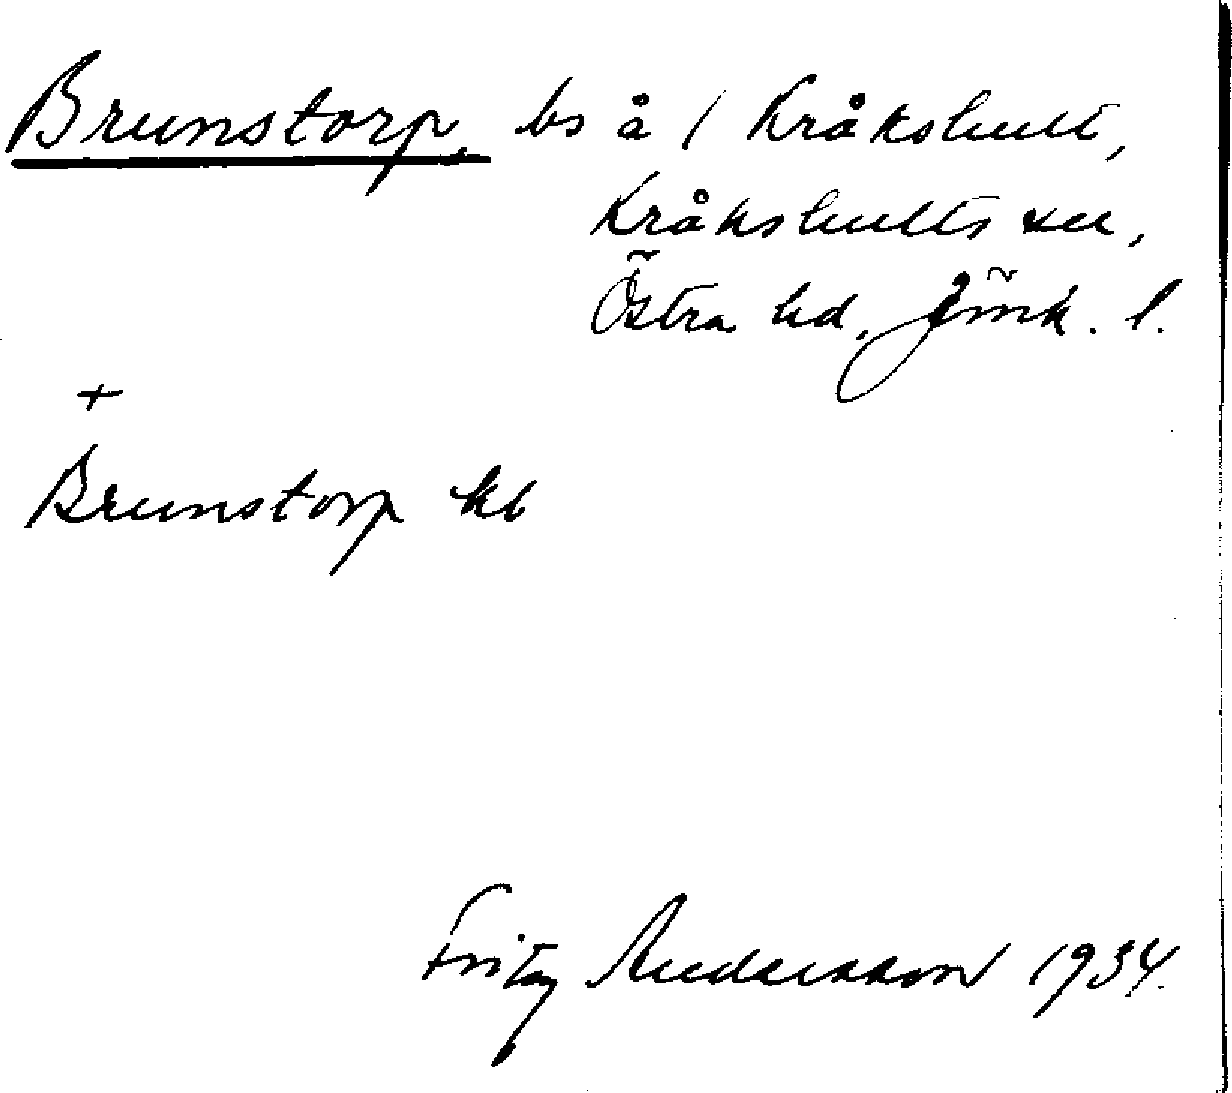 Brunstorp, bs å 1 Kråkshult,
Kråkshults sn,
Östra hd, Jönk. l.
+
Brunstorp kb
Fritz Andersson 1934.